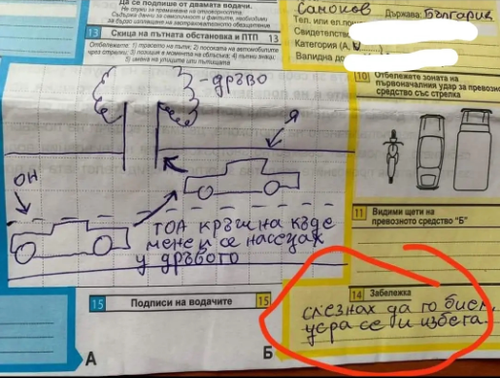 Да се подпише от двамата водачи.
Не служи за признаване на отговорността.
Съдържа данни за самоличност и фактите, необходими
за бързо изплащане на застрахователното обезщетение
13 Скица на пътната обстановка и ПТП 13
Отбележете: 1) трасето на пътя; 2) посоката на автомобилите
чрез стрелки; 3) позиция в момента на сблъсъка; 4) пътни знаци;
5) имена на улиците или пътищата
-дръво
Я
ОН
ТОА КРЪШНА КЪДЕ
МЕНЕ И СЕ НАСЕЦАХ
У ДРЪВОТО
15 Подписи на водачите 15
А
Б
Самоков Държава: България
Тел. или ел.
Свидетелств
Категория (А,
Валидна до
10 Отбележете зоната на
първоначалния удар за превозно
средство със стрелка
11 Видими щети по
превозното средство "Б"
14 Забележка
слезнах да го бием,
усра се и избега.